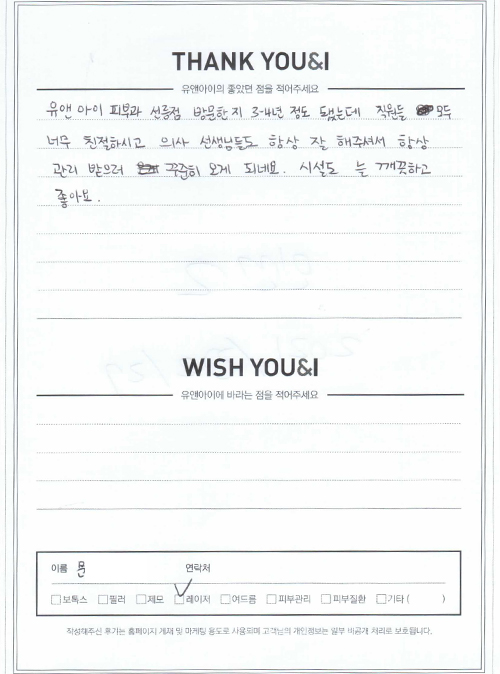 THANK YOU&I
유앤아이의 좋았던 점을 적어주세요
유앤아이 피부과 선릉점 방문한지 3-4년 정도 됐는데 직원들 모두
너무 친절하시고 의사 선생님들도 항상 잘 해주셔서 항상
관리 받으러 꾸준히 오게 되네요. 시설도 늘 깨끗하고
좋아요.
WISH YOU&I
유앤아이에 바라는 점을 적어주세요
이름 문 연락처
보톡스 필러 제모 레이저 여드름 피부관리 피부질환 기타 ( )
작성해주신 후기는 홈페이지 게재 및 마케팅 용도로 사용되며 고객님의 개인정보는 일부 비공개 처리로 보호됩니다.